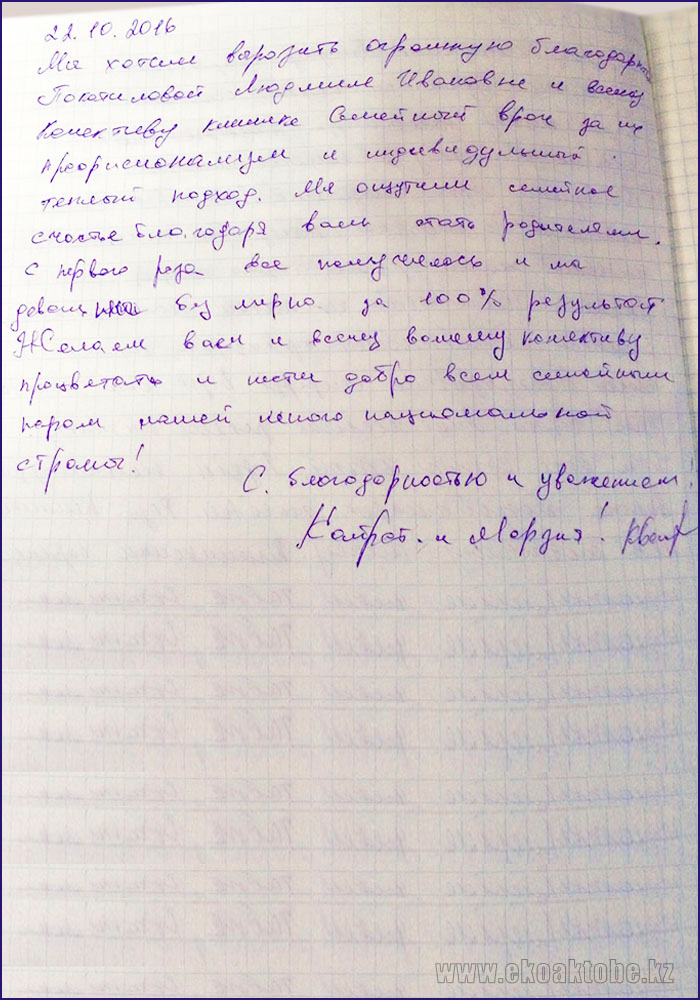 22.10.2016
Мы хотим выразить огромную благодарность
Покатиловой Людмиле Ивановне и всему
Колективу клинике Семейный врач за их
профисионализм и индивидульный
теплый подход. Мы ощутили семейное
счастье благодаря вам стать родителями.
С первого раза все получилось и мы
безмерно за 100% результат
Желаем вам и всему вашему колективу
процветать и нести добро всем семейным
парам нашей многонациональной
страны!
С благодарностью и уважением!
Кайрат и Марзия!
www.ekoaktobe.kz